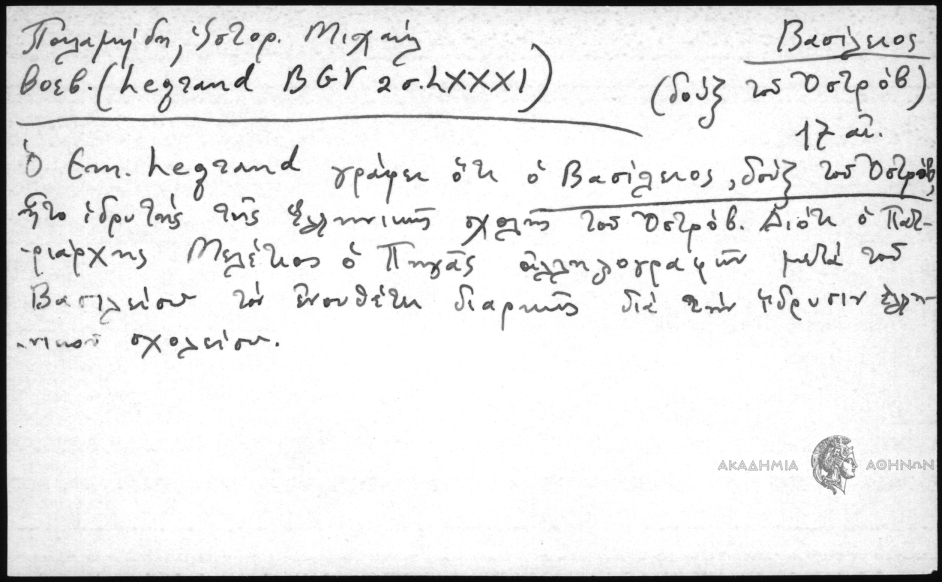 Παλαμήδη, Ἱστορ. Μιχαήλ
Βοεβ. (Legrand BGV 2 σ. LXXXI)
Βασίλειος
(δούξ τοῦ Ὀστρόβ)
17 αἰ.
Ὁ Em. Legrand γράφει ὅτι ὁ Βασίλειος, δούξ τοῦ Ὀστρόβ,
ἦτο ἱδρυτής τῆς ἑλληνικῆς σχολῆς τοῦ Ὀστρόβ. Διότι ὁ Πατ-
-ριάρχης Μελέτιος ὁ Πηγᾶς ἀλληλογραφῶν μετά τοῦ
Βασιλείου τόν ἐνουθέτει διαρκῶς διά τήν ἵδρυσιν ἑλλη-
-νικοῦ σχολείου.
ΑΚΑΔΗΜΙΑ ΑΘΗΝΩΝ